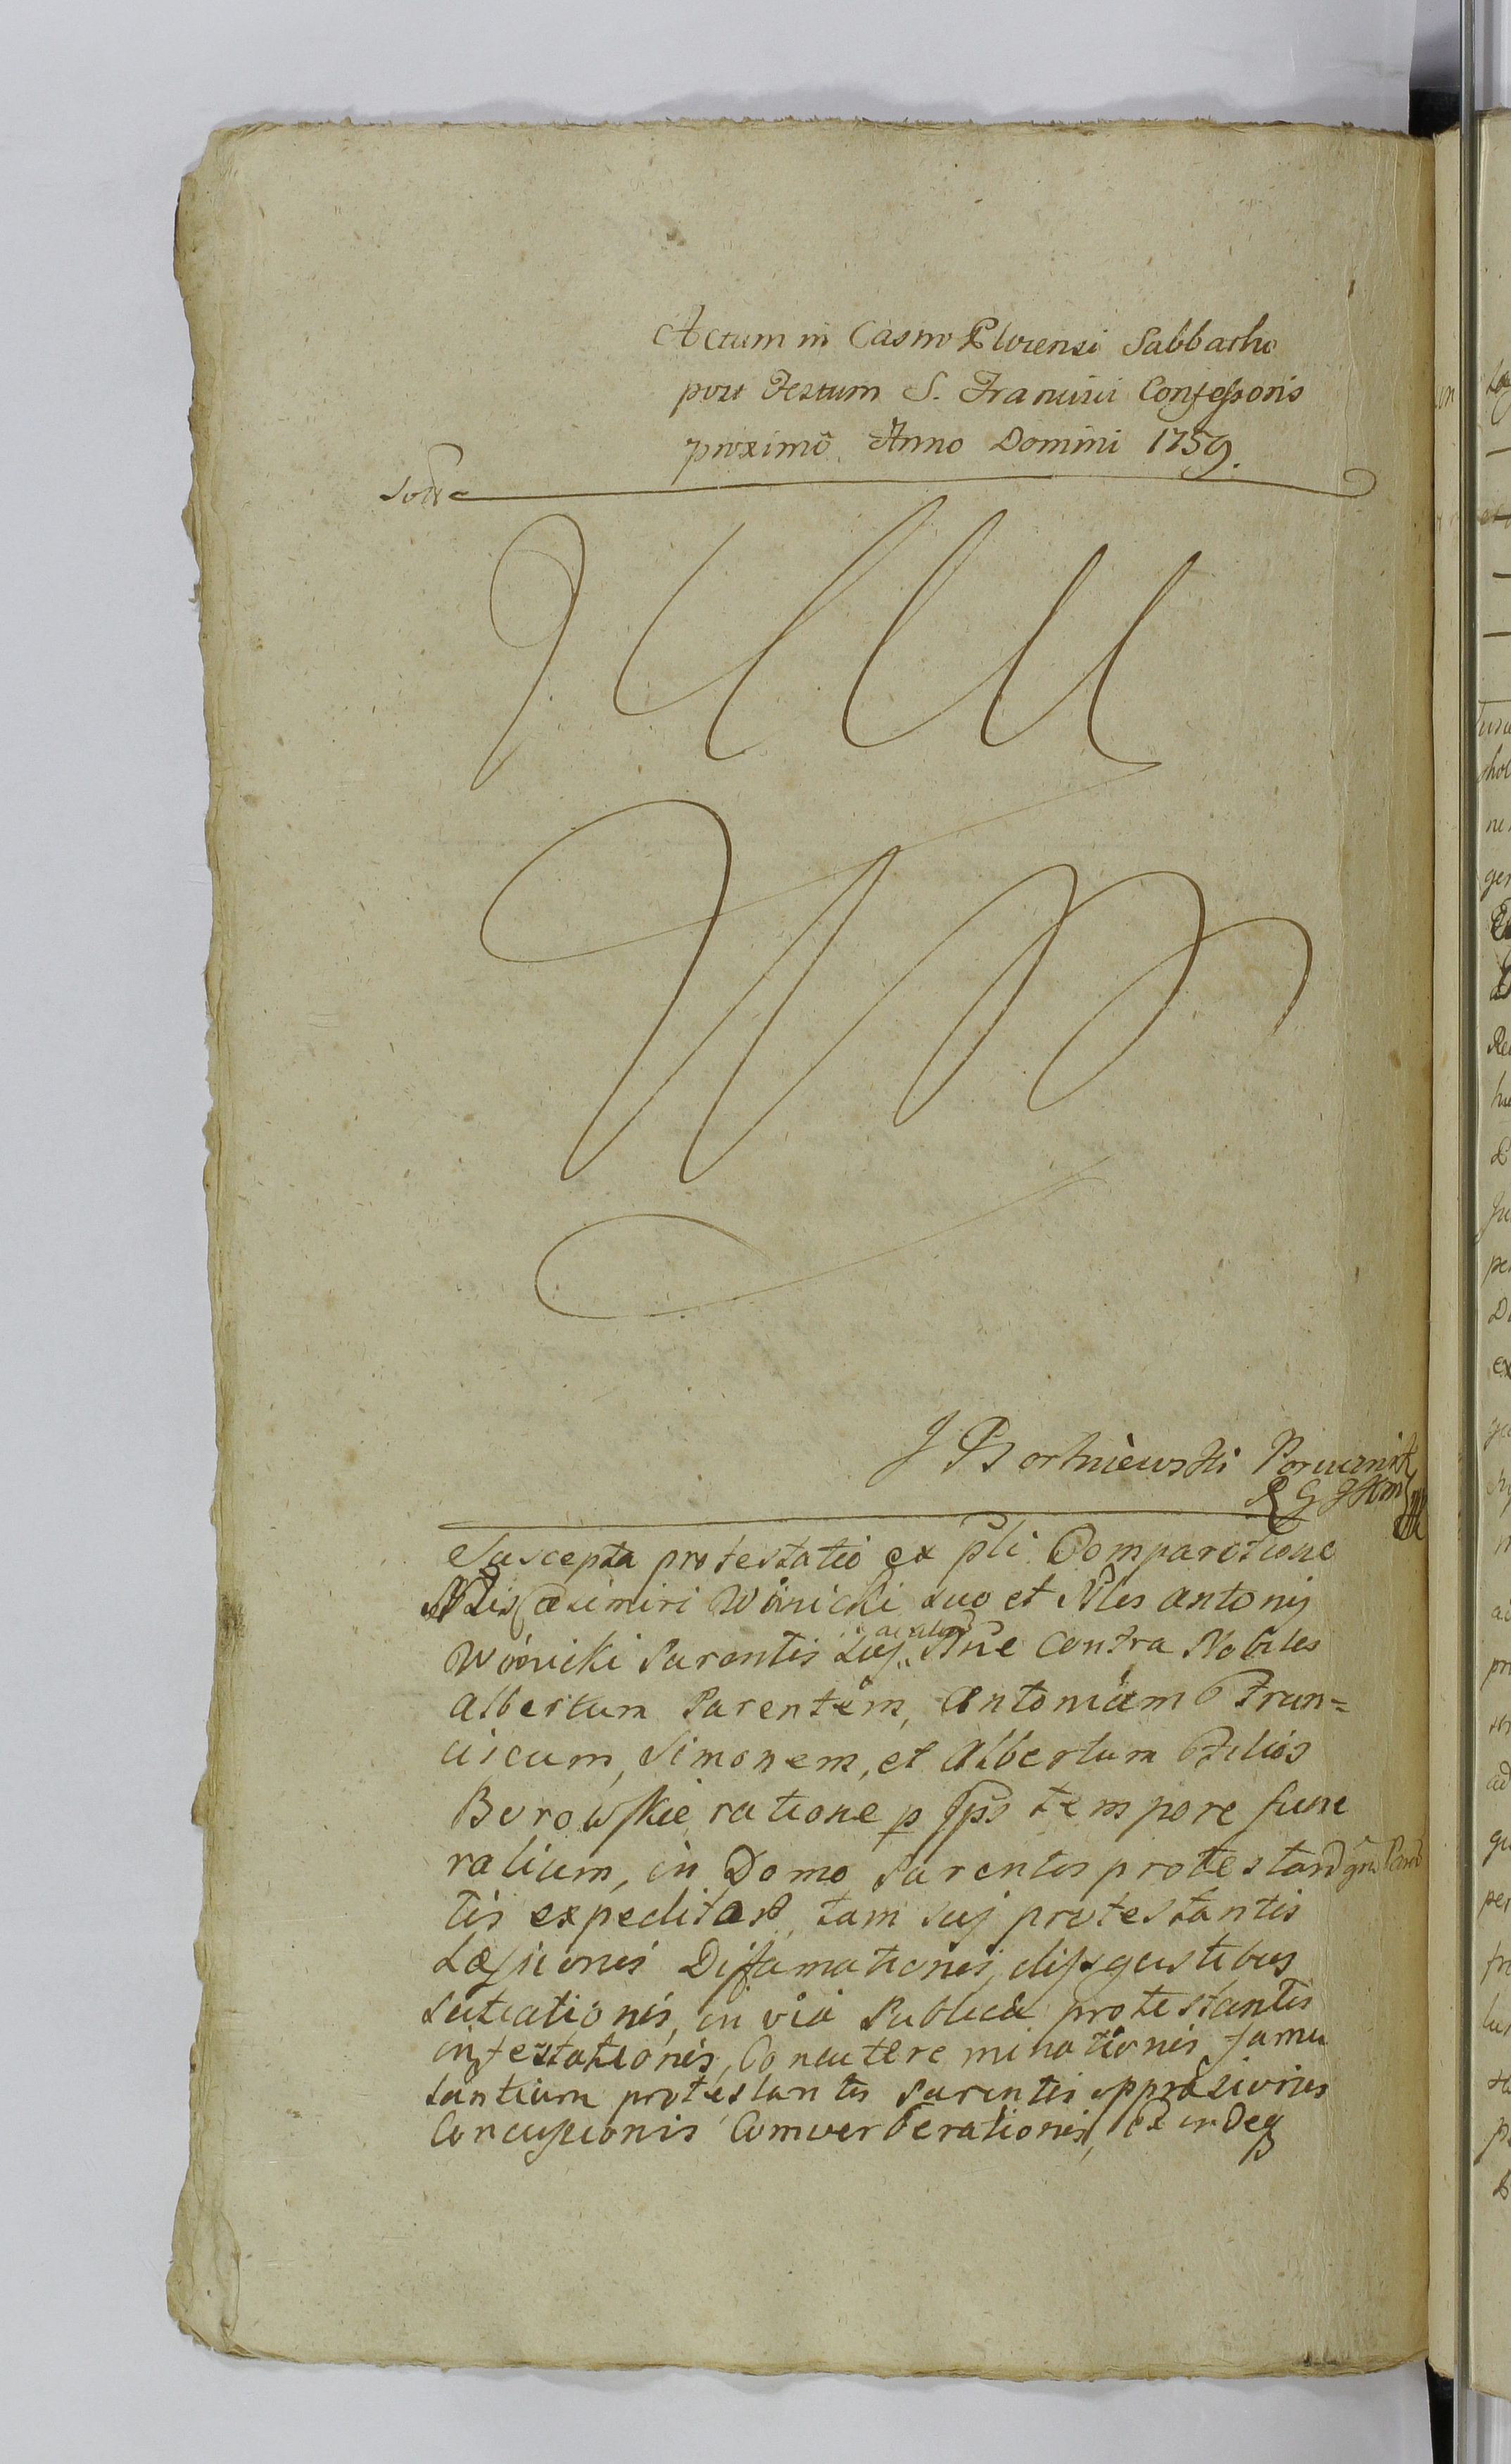 Actum in Castro Plocensi Sabbatho
post Festum S. Francisci Confessoris
proximo Anno Domini 1759.
J Bortniewski Porucznik
Suscepta protestatio ex pli Comparatione
Nlis Casimiri Woynicki suo et Nles Antonij
Parentis suj Nne contra Nobiles
Albertum Parentem, Antonium Fran=
ciscum, Simonem, et Albertum Filios
Borowskie ratione p Ipso tempore fune
ralium, in Domo Parentis protestan
tis expeditas, tam suj protestantis
Læsionis Difamationis, disgustibus
in via Publica protestantis
infestationis, minationis famu
lantium protestantis Parentis
Concussionis Comverberationis, et indeq